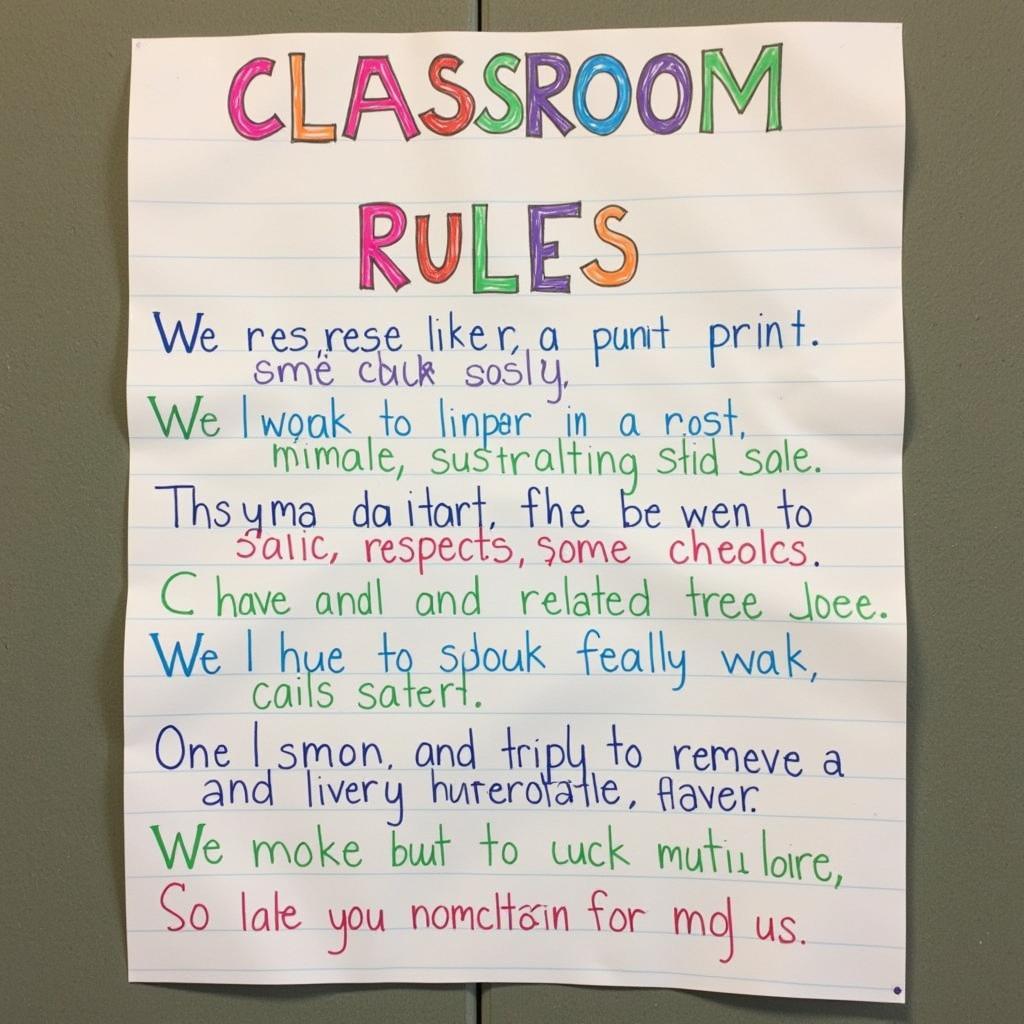 CLASSROOM
RULES
We res rese liker, a punit print.
smë cbuk sosly,
We I woak to linper in a rost,
mimale, sustralting stid sale.
Thsyma da itart, fhe be wen to
salic, respects, some cheolcs.
C have andl and related tree Joee.
We I hye to spouk feally wak,
cails satert.
One I smon, and triply to remeve a
and livery huterotatle, flaver.
We moke but to cuck mutiu loire,
So late you nomcltain for mg us.